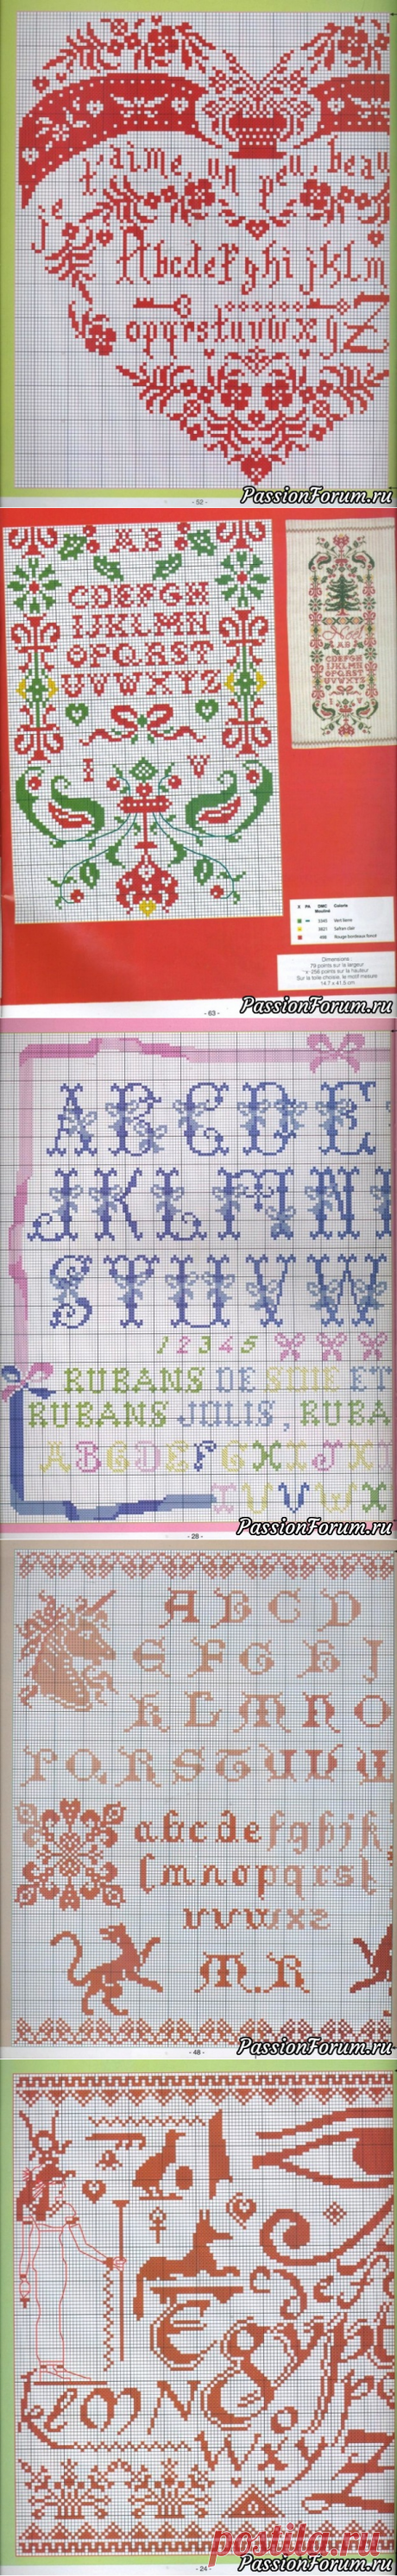 t'aime, un peu, beau
je
Abcdefghijklm
opqrstuvwxyz
- 52 -
PassionForum.ru
AB
CDEFGH
IJKLMN
OPQRST
UVWXYZ
I V
Noël
AB
CDEFGH
IJKLMN
OPQRST
UVWXYZ
X PA DMC Coloris
Mouliné
Vert
3821 Safran clair
498 Rouge bordeaux foncé
Dimensions :
79 points sur la largeur
256 points sur la hauteur
Sur la toile choisie, le motif mesure
14,7 x 41,5 cm
- 63 -
PassionForum.ru
ABCDE
JKLMN
STUVW
12345
RUBANS DE SOIE ET
RUBANS JOLIS, RUBA
ABCDEFGHIJKL
TUVWX
- 28 -
PassionForum.ru
ABCD
EFGHIJ
KLMNO
PQRSTUVW
abcdefghijk
lmnopqrst
uvwxz
M.R
- 48 -
PassionForum.ru
def
Egypt
LMN
o
p
wxy
Z
- 24 -
PassionForum.ru
postila.ru